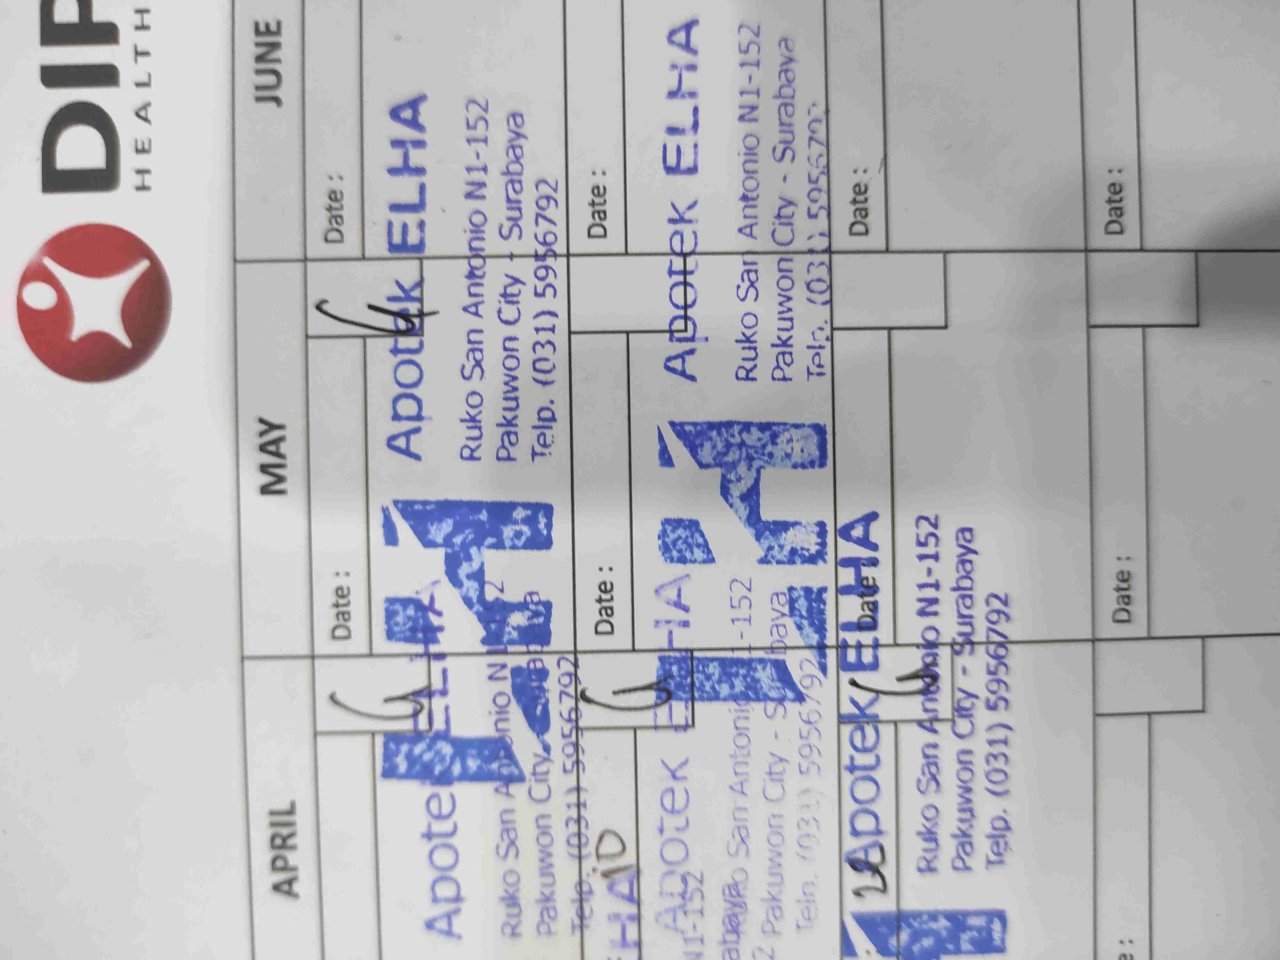 DIP
HEALTH
APRIL MAY JUNE
Date : Date :
Apotek ELHA
Ruko San Antonio N1-152
Pakuwon City - Surabaya
Telp. (031) 5956792
Apotek ELHA
Ruko San Antonio
Pakuwon City
Telp. (031) 5956792
Date : Date :
10
HA
Apotek ELHA
Ruko San Antonio N1-152
Pakuwon City - Surabaya
Telp. (031) 5956792
Apotek
N1-152
San Antonio -152
Pakuwon City
5956792
Date : Date :
28
Apotek ELHA
Ruko San Antonio N1-152
Pakuwon City - Surabaya
Telp. (031) 5956792
e : Date : Date :